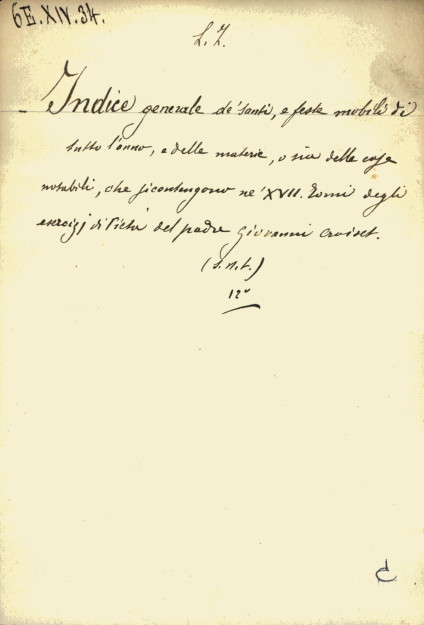 6E.XIV.34.
L. I.
Indice generale de' santi, e feste mobili di
tutto l'anno, e delle materie, o sia delle cose
notabili, che si contengono ne' XVII. Tomi degli
esercizj di Pietà del padre Giovanni Croiset.
(s.n.t.)
12º
C